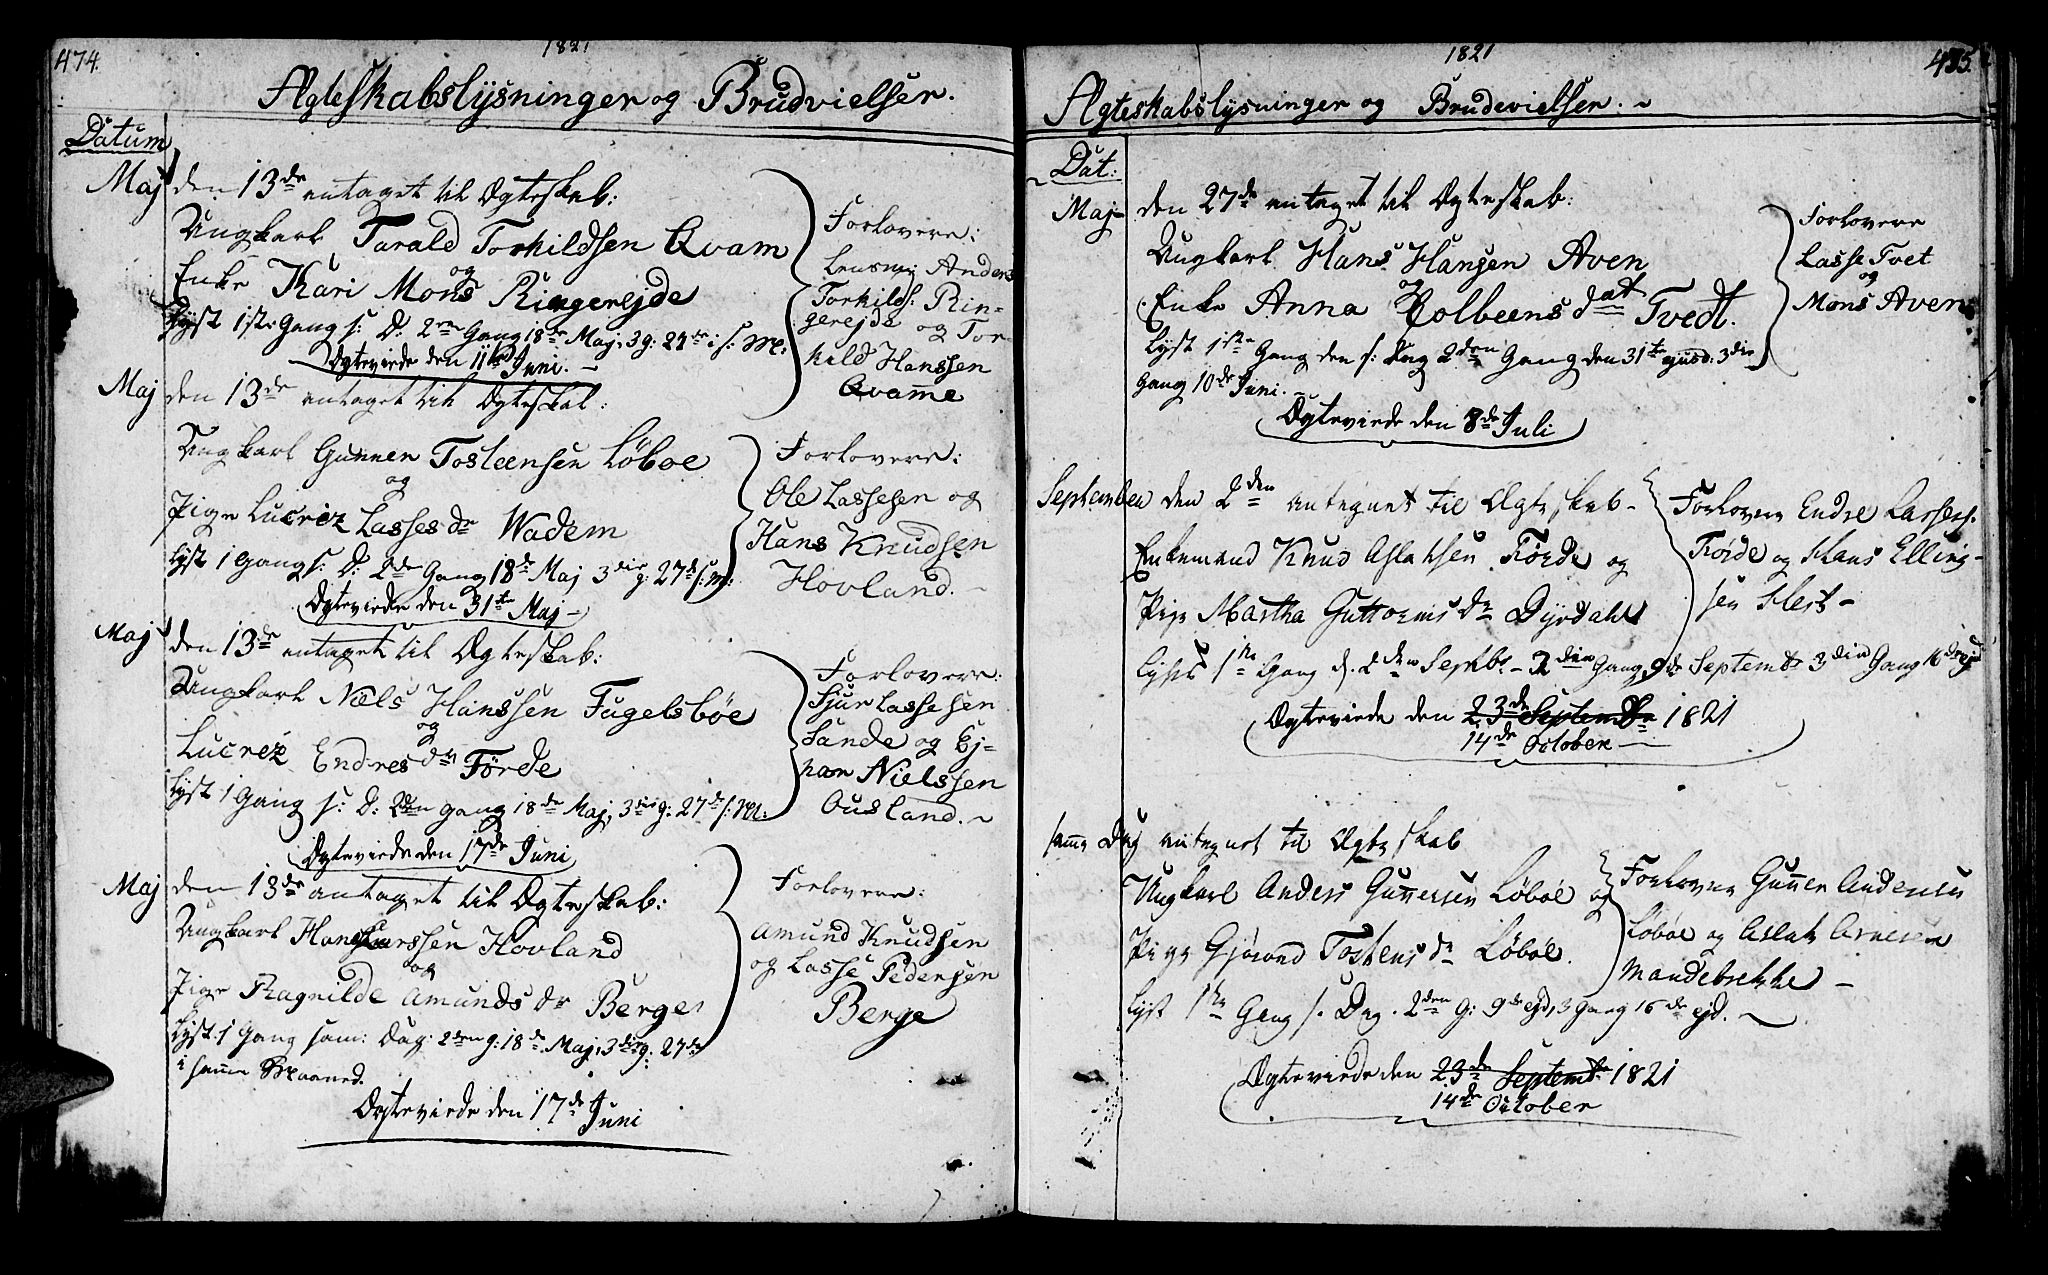 474.
1821
Ægteskabslysninger og Brudvielser.
Datum
Maj den 13de antaget til Ægteskab:
Ungkarl Tarald Torkildsen Qvam
og
Enke Kari Mons Ringerejde
Lyst 1ste Gang s: D: 2den Gang 18de Maj, 3 g: 27de i s: M:
Ægteviede den 11te Juni. –
Forlovere:
Lensm: Anders
Torkilds: Rin-
gerejde og Tor-
kild Hanssen
Qvamme
Maj den 13de antaget til Ægteskab:
Ungkarl Gunner Tosteensen Løboe
og
Pige Lucrez Lassesdr Wadem
Lyst 1 Gang s: D: 2de Gang 18de Maj 3die g: 27de s: M:
Ægteviede den 31te Maj –
Forlovere:
Ole Lassesen og
Hans Knudsen
Hovland. –
Maj den 13de antaget til Ægteskab:
Ungkarl Niels Hanssen Fugelsbøe
og
Lucrez Endresdr Förde
Lyst 1 Gang s: D: 2den gang 18de Maj, 3die g: 27de s: M:
Ægteviede den 17de Juni
Forlovere:
Sjur Lassesen
Sande og Ej-
nar Nielssen
Ousland. ~
Maj den 13de antaget til Ægteskab:
Ungkarl Hans Larssen Hovland
og
Pige Ragnilde Amunds dr Berge
Lyst 1 Gang sam: Dag: 2den g: 18de Maj, 3die g: 27de
i samme Maaned.
Ægteviede den 17de Juni
Forlovere:
Amund Knudsen
og Lasse Pedersen
Berge
1821
475.
Ægteskabslysninger og Brudevielser. ~
Dat:
Maj den 27de antaget til Ægteskab:
Ungkarl Hans Hansen Aven
og
Enke Anna Kolbeens dat Tvedt.
Lyst 1ste Gang den s: Dag 2den Gang den 31te ejusd: 3die
Gang 10de Juni. –
Ægteviede den 8de Juli
Forlovere
Lasse Tvet
og
Mons Aven
September den 2den antegnet til Ægteskab –
Enkemand Knud Aslaksen Förde og
Pige Martha Guttormsdr Dyrdahl
Forlovere Endre Lasses.
Förde og Hans Elling-
sen Hest –
lyst 1ste Gang d. 2den Septbr – 2den Gang 9de Septembr 3die Gang 16de ejd
Ægteviede den 23de Septembr 1821
14de October
samme Dag antegnet til Ægteskab
Ungkarl Anders Gunnersen Löböe og
Pige Gjórond Tostens dr Löböe.
Forlovere Gunner Andersen
Löböe og Aslak Arnesen
Mandebrekke –
lyst 1ste Gang s. Dag. 2den G: 9de ejd, 3 Gang 16de ejd. –
Ægteviede den 23de Septembr 1821
14de October